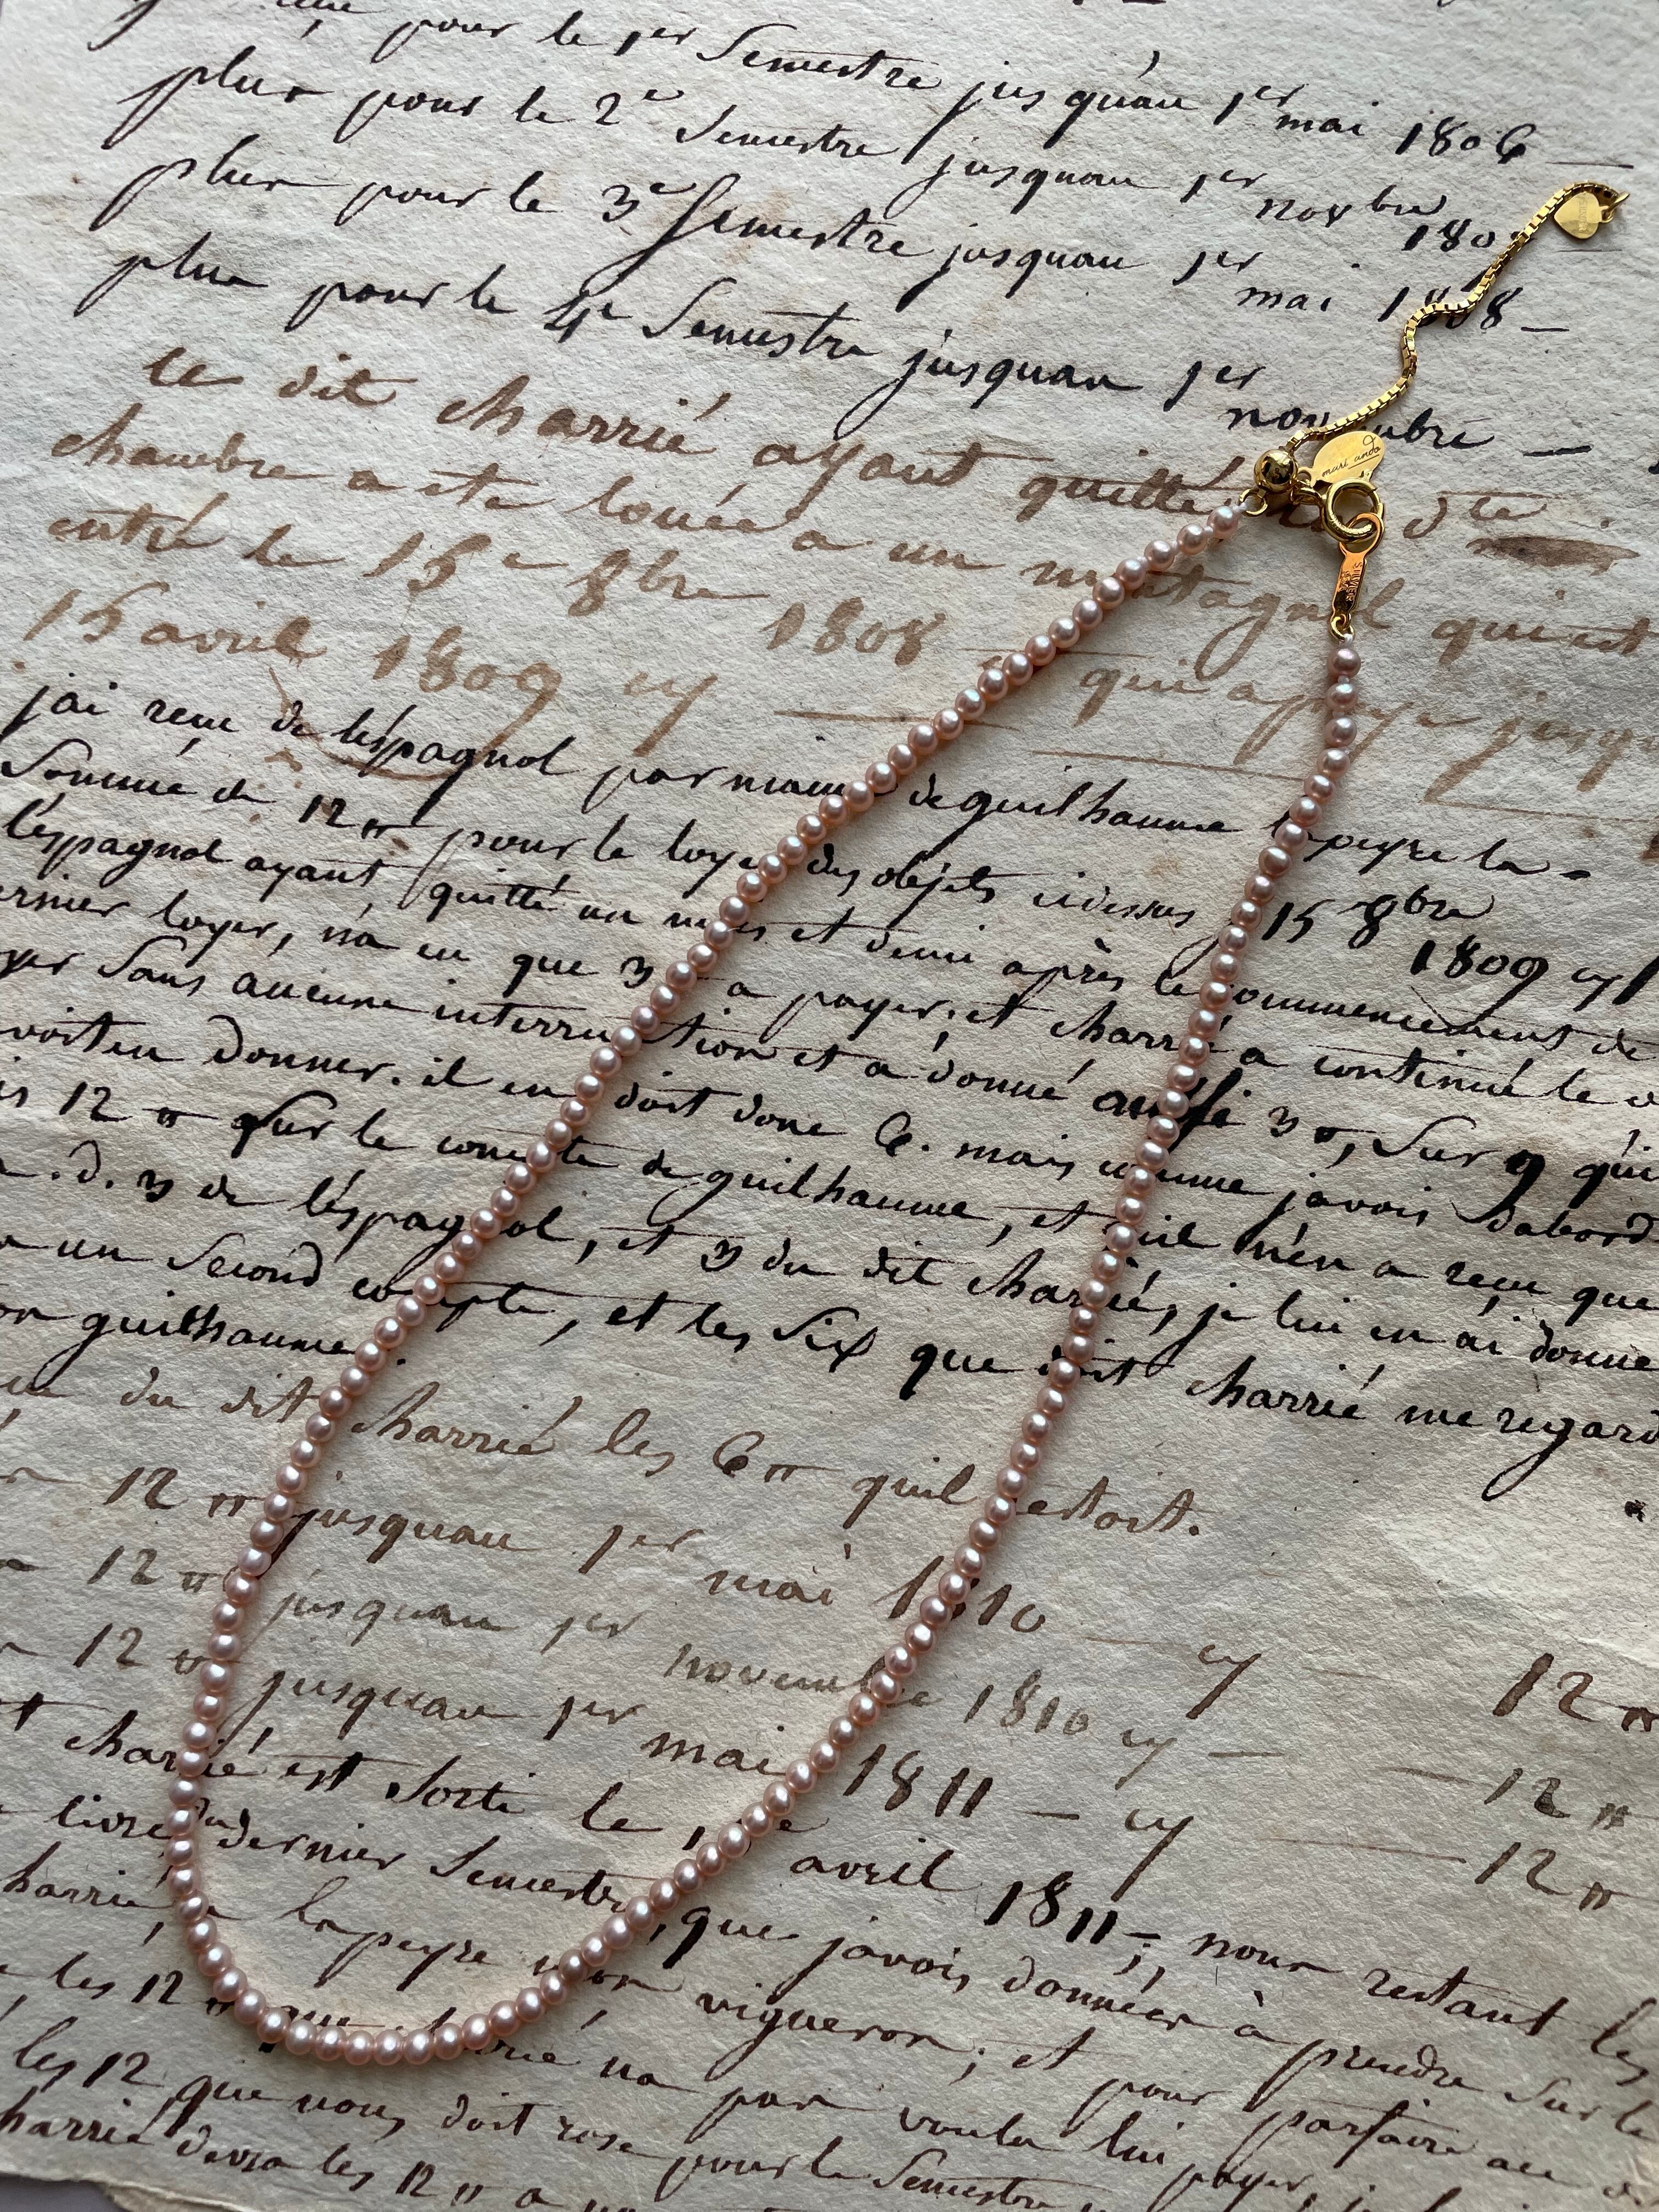 pour le 1er Semestre jusquau 1er mai 1806 —
plus pour le 2e Semestre jusquau 1er novbre 180
plus pour le 3e Semestre jusquau 1er mai 1808 —
plus pour le 4e Semestre jusquau 1er novembre —
le dit charrié ayant quitté dte
chambre a ete louée a un montagnol qui est
entré le 15e 8bre 1808 — qui a payé jusqu
15 avril 1809 cy
jai reçu de léspagnol par main de guilhaume lapeyre la
Somme de 12 ₶ pour le loyer des objets cidessus 15 8bre 1809 cy
léspagnol ayant quitté un mois et demi après le commencement de
ernier loyer, n'a eu que 3 a payer, et charrié a continué le
yer Sans aucune interruption et a donné aussi 3 ₶, Sur 9 qu'il
voit en donner. il en doit donc 6. mais comme javois dabord
is 12 ₶ Sur le compte de guilhaume, et quil n'en a reçu que
.d. 3 de léspagnol, et 3 du dit charrié, je lui en ai donné
un Second compte, et les Six que doit charrié me regard
on guilhaume.
du dit charrié les 6 ₶ quil restoit.
12 ₶ jusquau 1er mai 1810 — cy 12 ₶
12 ₶ jusquau 1er novembre 1810 cy — 12 ₶
12 ₶ jusquau 1er mai 1811 — cy — 12 ₶
charrié est Sorti le avril 1811 —; nous restant les
livre du dernier Semestre, que javois données à prendre Sur le
harrié, a lapeyre mon vigneron; et pour parfaire
les 12 ₶ que charrié na pas voulu lui payer,
les 12 que nous doit rose pour le Semestre
harrié devra les 12 ₶ a
mari ando
SILVER